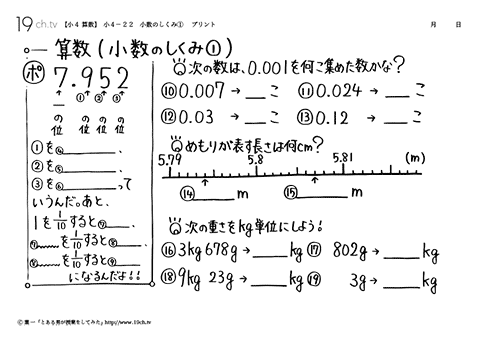 19ch.tv 【小4 算数】 小4-22 小数のしくみ① プリント 月 日
算数(小数のしくみ①)
ポ 7.952
① ② ③
の位 の位 の位 の位
①を④____、
②を⑤____、
③を⑥____って
いうんだ。あと、
1を1/10すると⑦____、
⑦____を1/10すると⑧____、
⑧____を1/10すると⑨____
になるんだよ!!
次の数は、0.001を何こ集めた数かな?
⑩0.007→____こ ⑪0.024→____こ
⑫0.03→____こ ⑬0.12→____こ
めもりが表す長さは何cm?
5.79 5.8 5.81 (m)
⑭____m ⑮____m
次の重さをkg単位にしよう!
⑯3kg678g→____kg ⑰802g→____kg
⑱9kg 23g→____kg ⑲3g→____kg
葉一「とある男が授業をしてみた」http://www.19ch.tv